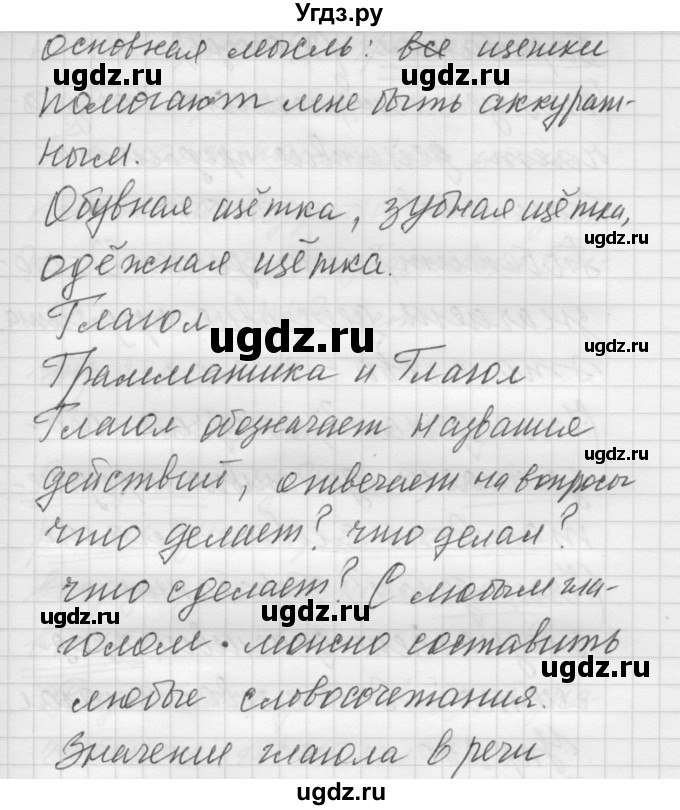 Угдз.ру
основная мысль: все щетки
помогают мне быть аккурат-
ным.
Обувная щётка, зубная щётка,
одёжная щётка.
Глагол
Грамматика и Глагол
Глагол обозначает названия
действий, отвечает на вопросы
что делает? что делал?
что сделает? С любым гла-
голом можно составить
любые словосочетания.
Значение глагола в речи
ugdz.ru
ugdz.ru
ugdz.ru
ugdz.ru
ugdz.ru
ugdz.ru
ugdz.ru
ugdz.ru
ugdz.ru
ugdz.ru
ugdz.ru
ugdz.ru